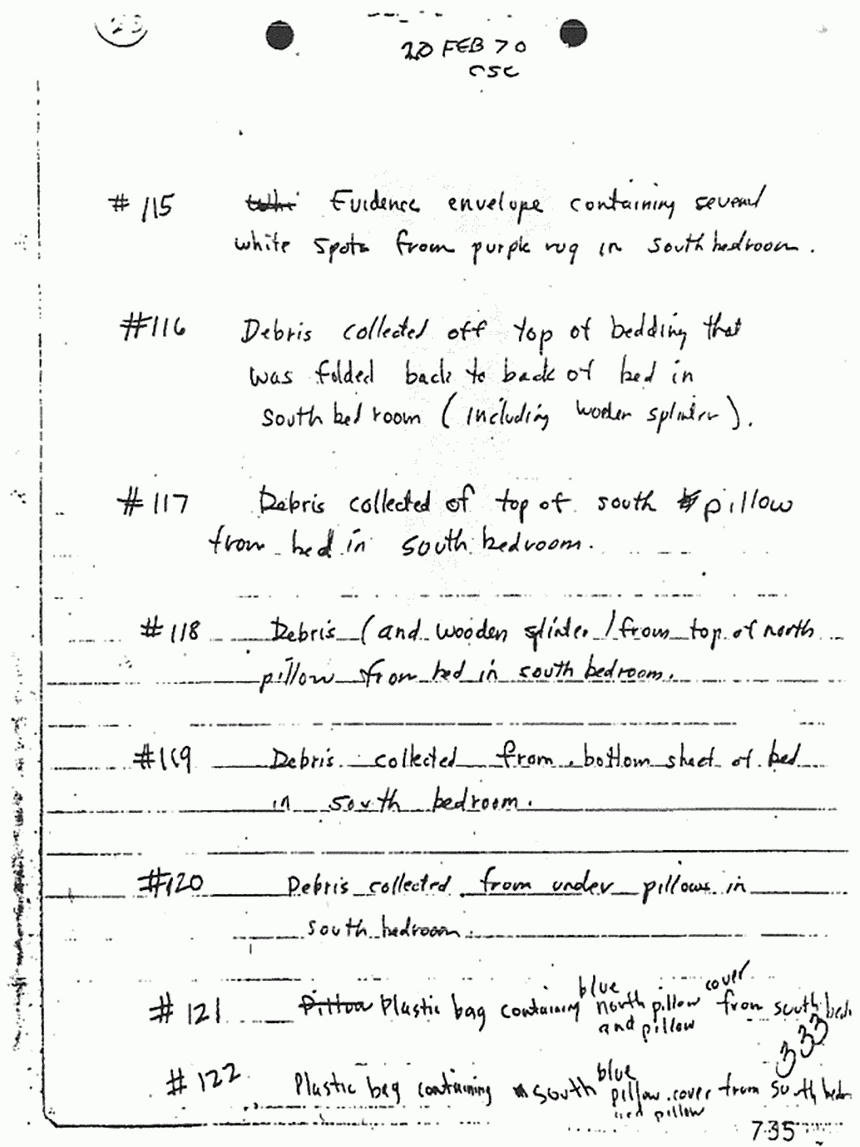 23
20 FEB 70
CSC
# 115 Evidence envelope containing several
white spots from purple rug in south bedroom.
#116 Debris collected off top of bedding that
was folded back to back of bed in
south bedroom (including wooden splinter).
# 117 Debris collected of top of south pillow
from bed in south bedroom.
# 118 Debris (and wooden splinter) from top of north
pillow from bed in south bedroom.
#119 Debris collected from bottom sheet of bed
in south bedroom.
#120 Debris collected from under pillows in
south bedroom.
blue cover
# 121 Pillow Plastic bag containing north pillow from south bed
and pillow
333
blue
# 122 Plastic bag containing south pillow cover from south bedr
and pillow
735